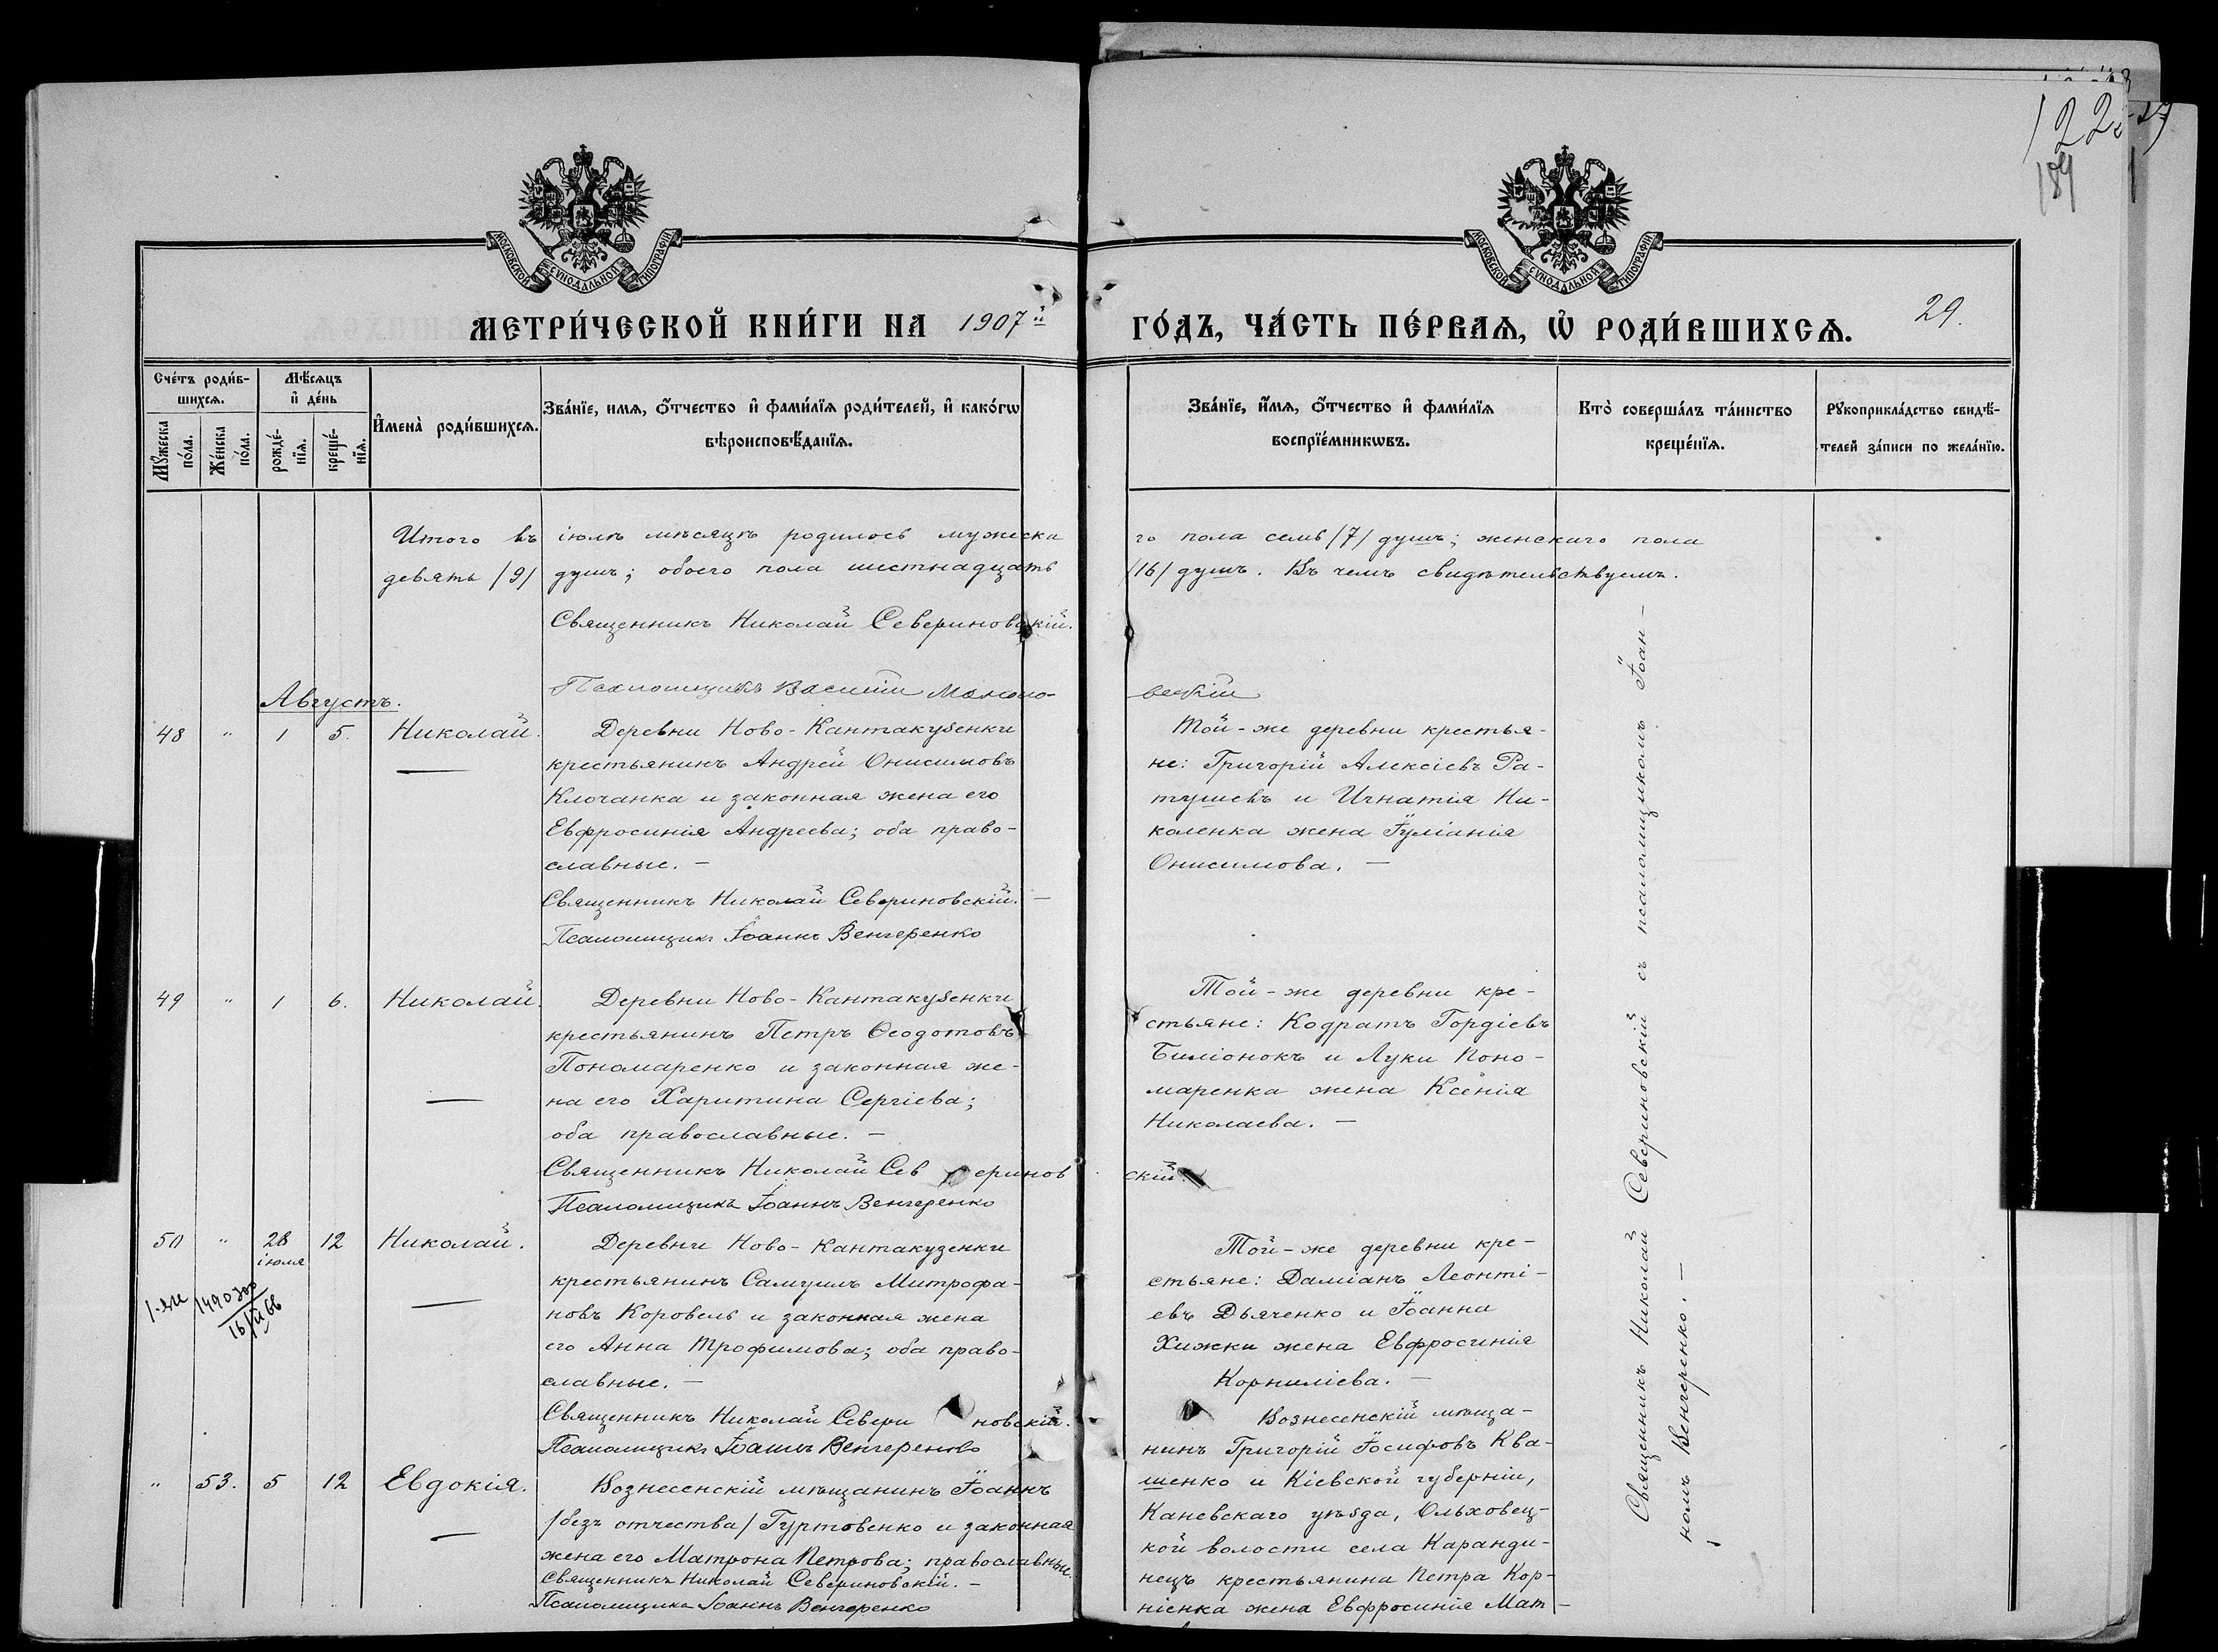 122
189
МОСКОВСКОЙ СѴНОДАЛЬНОЙ ТИПОГРАФІИ
МОСКОВСКОЙ СѴНОДАЛЬНОЙ ТИПОГРАФІИ
МЕТРИ́ЧЕСКОЙ КНИ́ГИ НА 1907й
ГО́ДЪ, ЧА́СТЬ ПЕ́РВАѦ, Ѡ҆ РОДИ́ВШИХСѦ.
29.
Сче́тъ роди́в-
шихсѧ.
Мꙋ́жеска
по́ла.
Же́нска
по́ла.
Мѣ́сѧцъ
и҆ де́нь
рожде́-
нїѧ.
креще́-
нїѧ.
И҆мена̀ роди́вшихсѧ.
Зва́нїе, имѧ, ѻ҆́тчество и҆ фами́лїѧ роди́телей, и҆ како́гѡ
вѣроисповѣ́данїѧ.
Зва́нїе, и҆́мѧ, ѻ҆́тчество и҆ фами́лїѧ
воспрїе́мникѡвъ.
Кто̀ соверша́лъ та́инство
креще́нїѧ.
Рꙋкоприкла́дство свидѣ́-
телей за́писи по жела́нїю.
Итого въ іюлѣ мѣсяцѣ родилось мужеска
го пола семь /7/ душъ; женскаго пола
девять /9/ душъ; обоего пола шестнадцать
/16/ душъ. Въ чемъ свидѣтельствуемъ.
Священникъ Николай Севериновскій.
Псаломщикъ Василій
Августъ.
48 " 1 5. Николай.
Деревни Ново-Кантакузенки
крестьянинъ Андрей Онисимовъ
Клочанка и законная жена его
Евфросинія Андреева; оба право-
славные. —
Священникъ Николай Севериновскій. —
Псаломщикъ Іоаннъ Венгеренко
Той-же деревни крестья-
не: Григорій Алексіевъ Ра-
тушевъ и Игнатія Ни-
коленка жена Іуліанія
Онисимова. —
49 " 1 6. Николай.
Деревни Ново-Кантакузенки
крестьянинъ Петръ Ѳеодотовъ
Пономаренко и законная же-
на его Харитина Сергіева;
оба православные. —
Священникъ Николай Северинов
скій.
Псаломщикъ Іоаннъ Венгеренко
Той-же деревни кре-
стьяне: Кодратъ Гордіевъ
Биліонокъ и Луки Поно-
маренка жена Ксенія
Николаева. —
50 " 28 іюля 12 Николай.
Деревни Ново-Кантакузенки
крестьянинъ Самуилъ Митрофа-
новъ Коровель и законная жена
его Анна Трофимова; оба право-
славные. —
Священникъ Николай Севериновскій.
Псаломщикъ Іоаннъ Венгеренко
Той-же деревни кре-
стьяне: Даміанъ Леонті-
евъ Дьяченко и Іоанна
Хижки жена Евфросинія
Корниліева. —
" 53. 5 12 Евдокія.
Вознесенскій мѣщанинъ Іоаннъ
/безъ отчества/ Гуртовенко и законная
жена его Матрона Петрова; православные.
Священникъ Николай Севериновскій. —
Псаломщикъ Іоаннъ Венгеренко
Вознесенскій мѣща-
нинъ Григорій Іосифовъ Ква-
шенко и Кіевской губерніи,
Каневскаго уѣзда, Ольховец-
кой волости села Каранди-
нецъ крестьянина Петра Кор-
ніенка жена Евфросинія Мат-
Священникъ Николай Севериновскій съ псаломщикомъ Іоан-
номъ Венгеренко. —